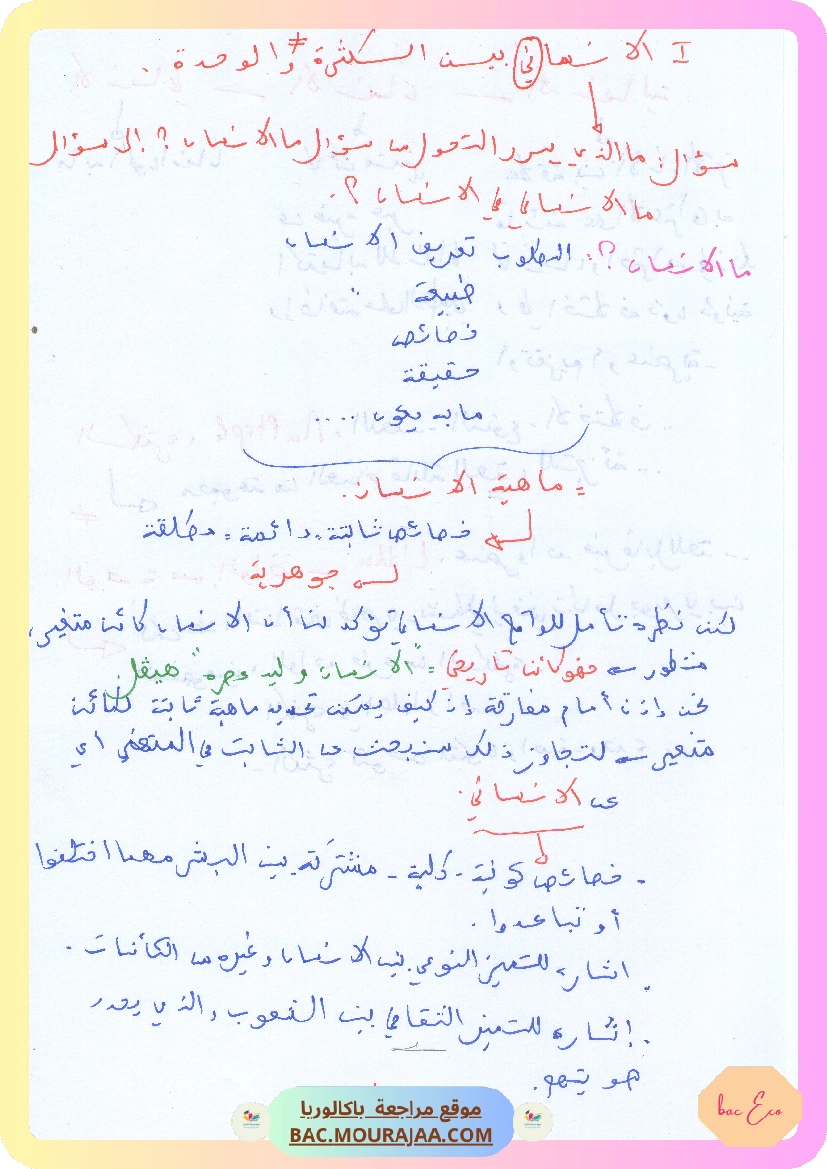 I الانساني بين الكثرة ≠ والوحدة.
سؤال: ما الذي يبرر التحول من سؤال ما الانسان؟ إلى سؤال
ما الانساني في الانسان؟.
ما الانسان؟: المطلوب تعريف الانسان
طبيعة :
خصائص
حقيقة
ما به يكون ....
= ماهية الانسان.
خصائص ثابتة، دائمة، مطلقة
جوهرية
لكن نظرة تأمل للواقع الانساني تؤكد لنا أن الانسان كائن متغير،
متطور فهو كائن تاريخي = "الانسان وليد عصره" هيڤل
نحن إذن أمام مفارقة إذ كيف يمكن تحديد ماهية ثابتة لكائن
متغير لتجاوز ذلك سنبحث عن الثابت في المتغير أي
عن الانساني.
- خصائص كونية - كلية - مشتركة بين البشر مهما اختلفوا
أو تباعدوا.
. اشارة للتميز النوعي بين الانسان وغيره من الكائنات.
. إشارة للتميز الثقافي بين الشعوب، والذي
هويتهم.
موقع مراجعة باكالوريا
BAC.MOURAJAA.COM
bac Eco